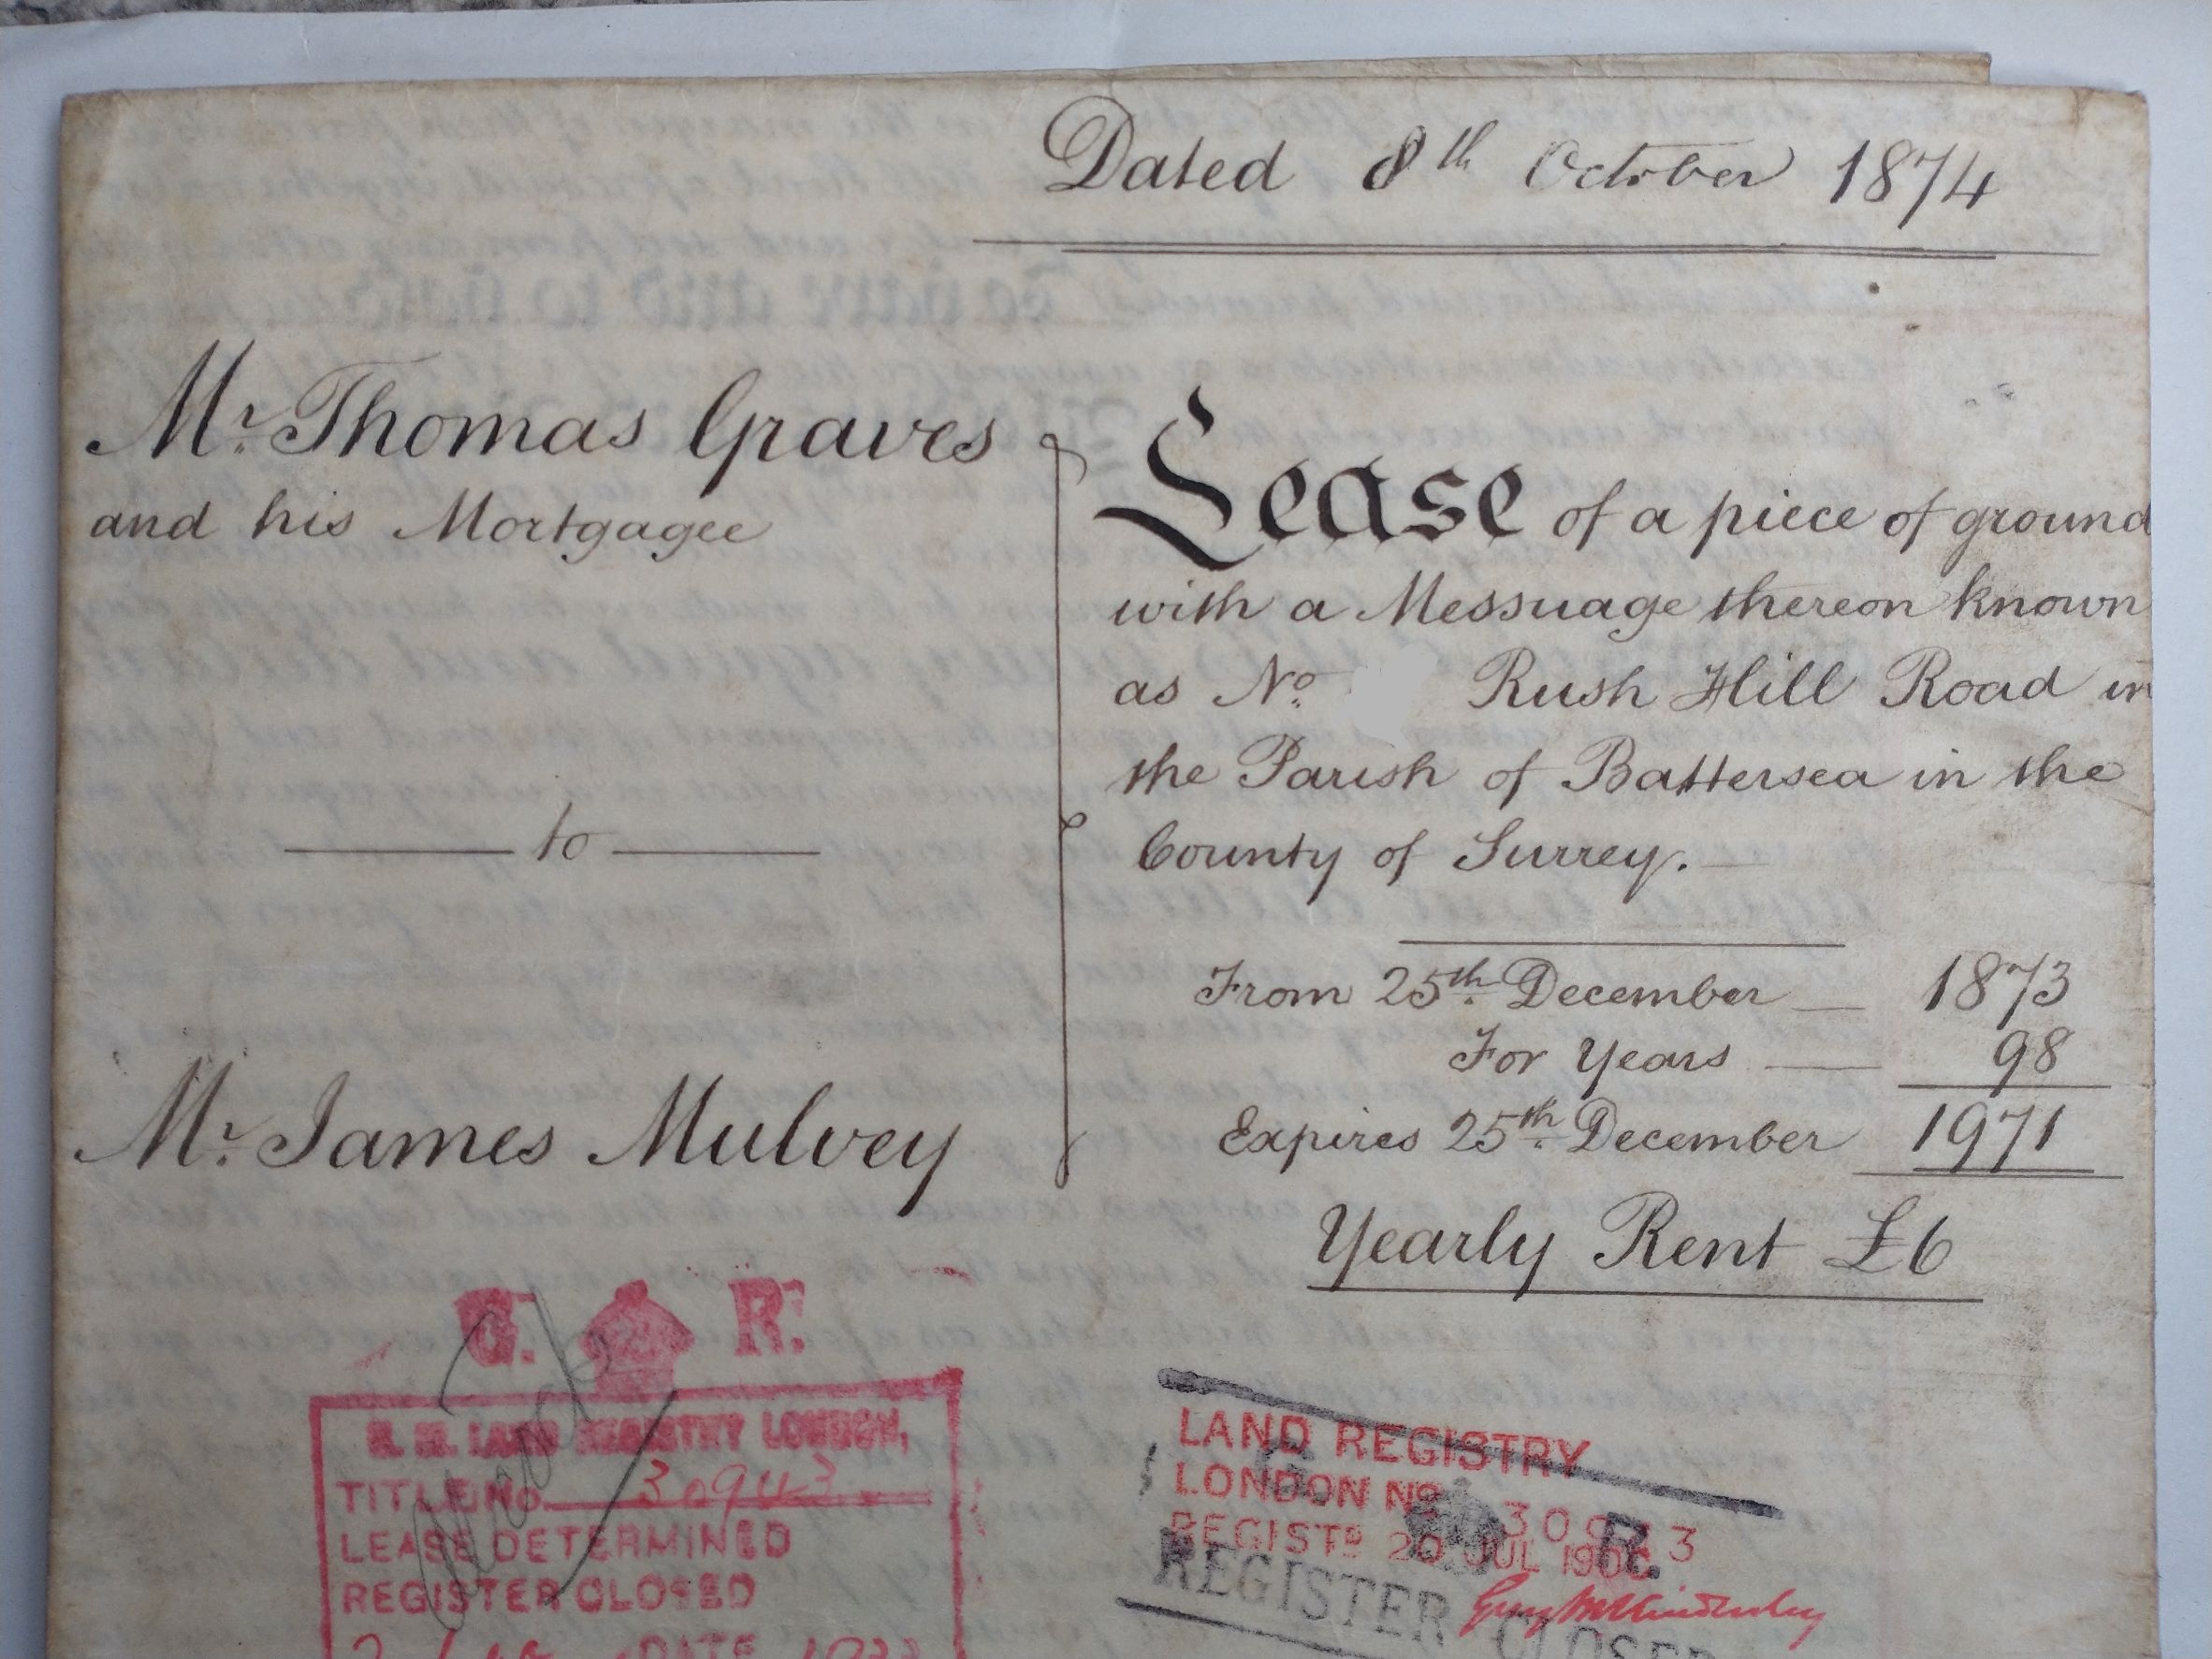 Dated 8th October 1874
Mr. Thomas Graves
and his Mortgagee
to
Mr. James Mulvey
Lease of a piece of ground
with a Messuage thereon known
as No. Rush Hill Road in
the Parish of Battersea in the
County of Surrey.
From 25th December 1873
For Years 98
Expires 25th December 1971
Yearly Rent £6
G. R.
H. M. LAND REGISTRY LONDON,
TITLE No. 30943
LEASE DETERMINED
REGISTER CLOSED
DATE
LAND REGISTRY
LONDON No
REGISTD 20 JUL
R.
REGISTER CLOSED